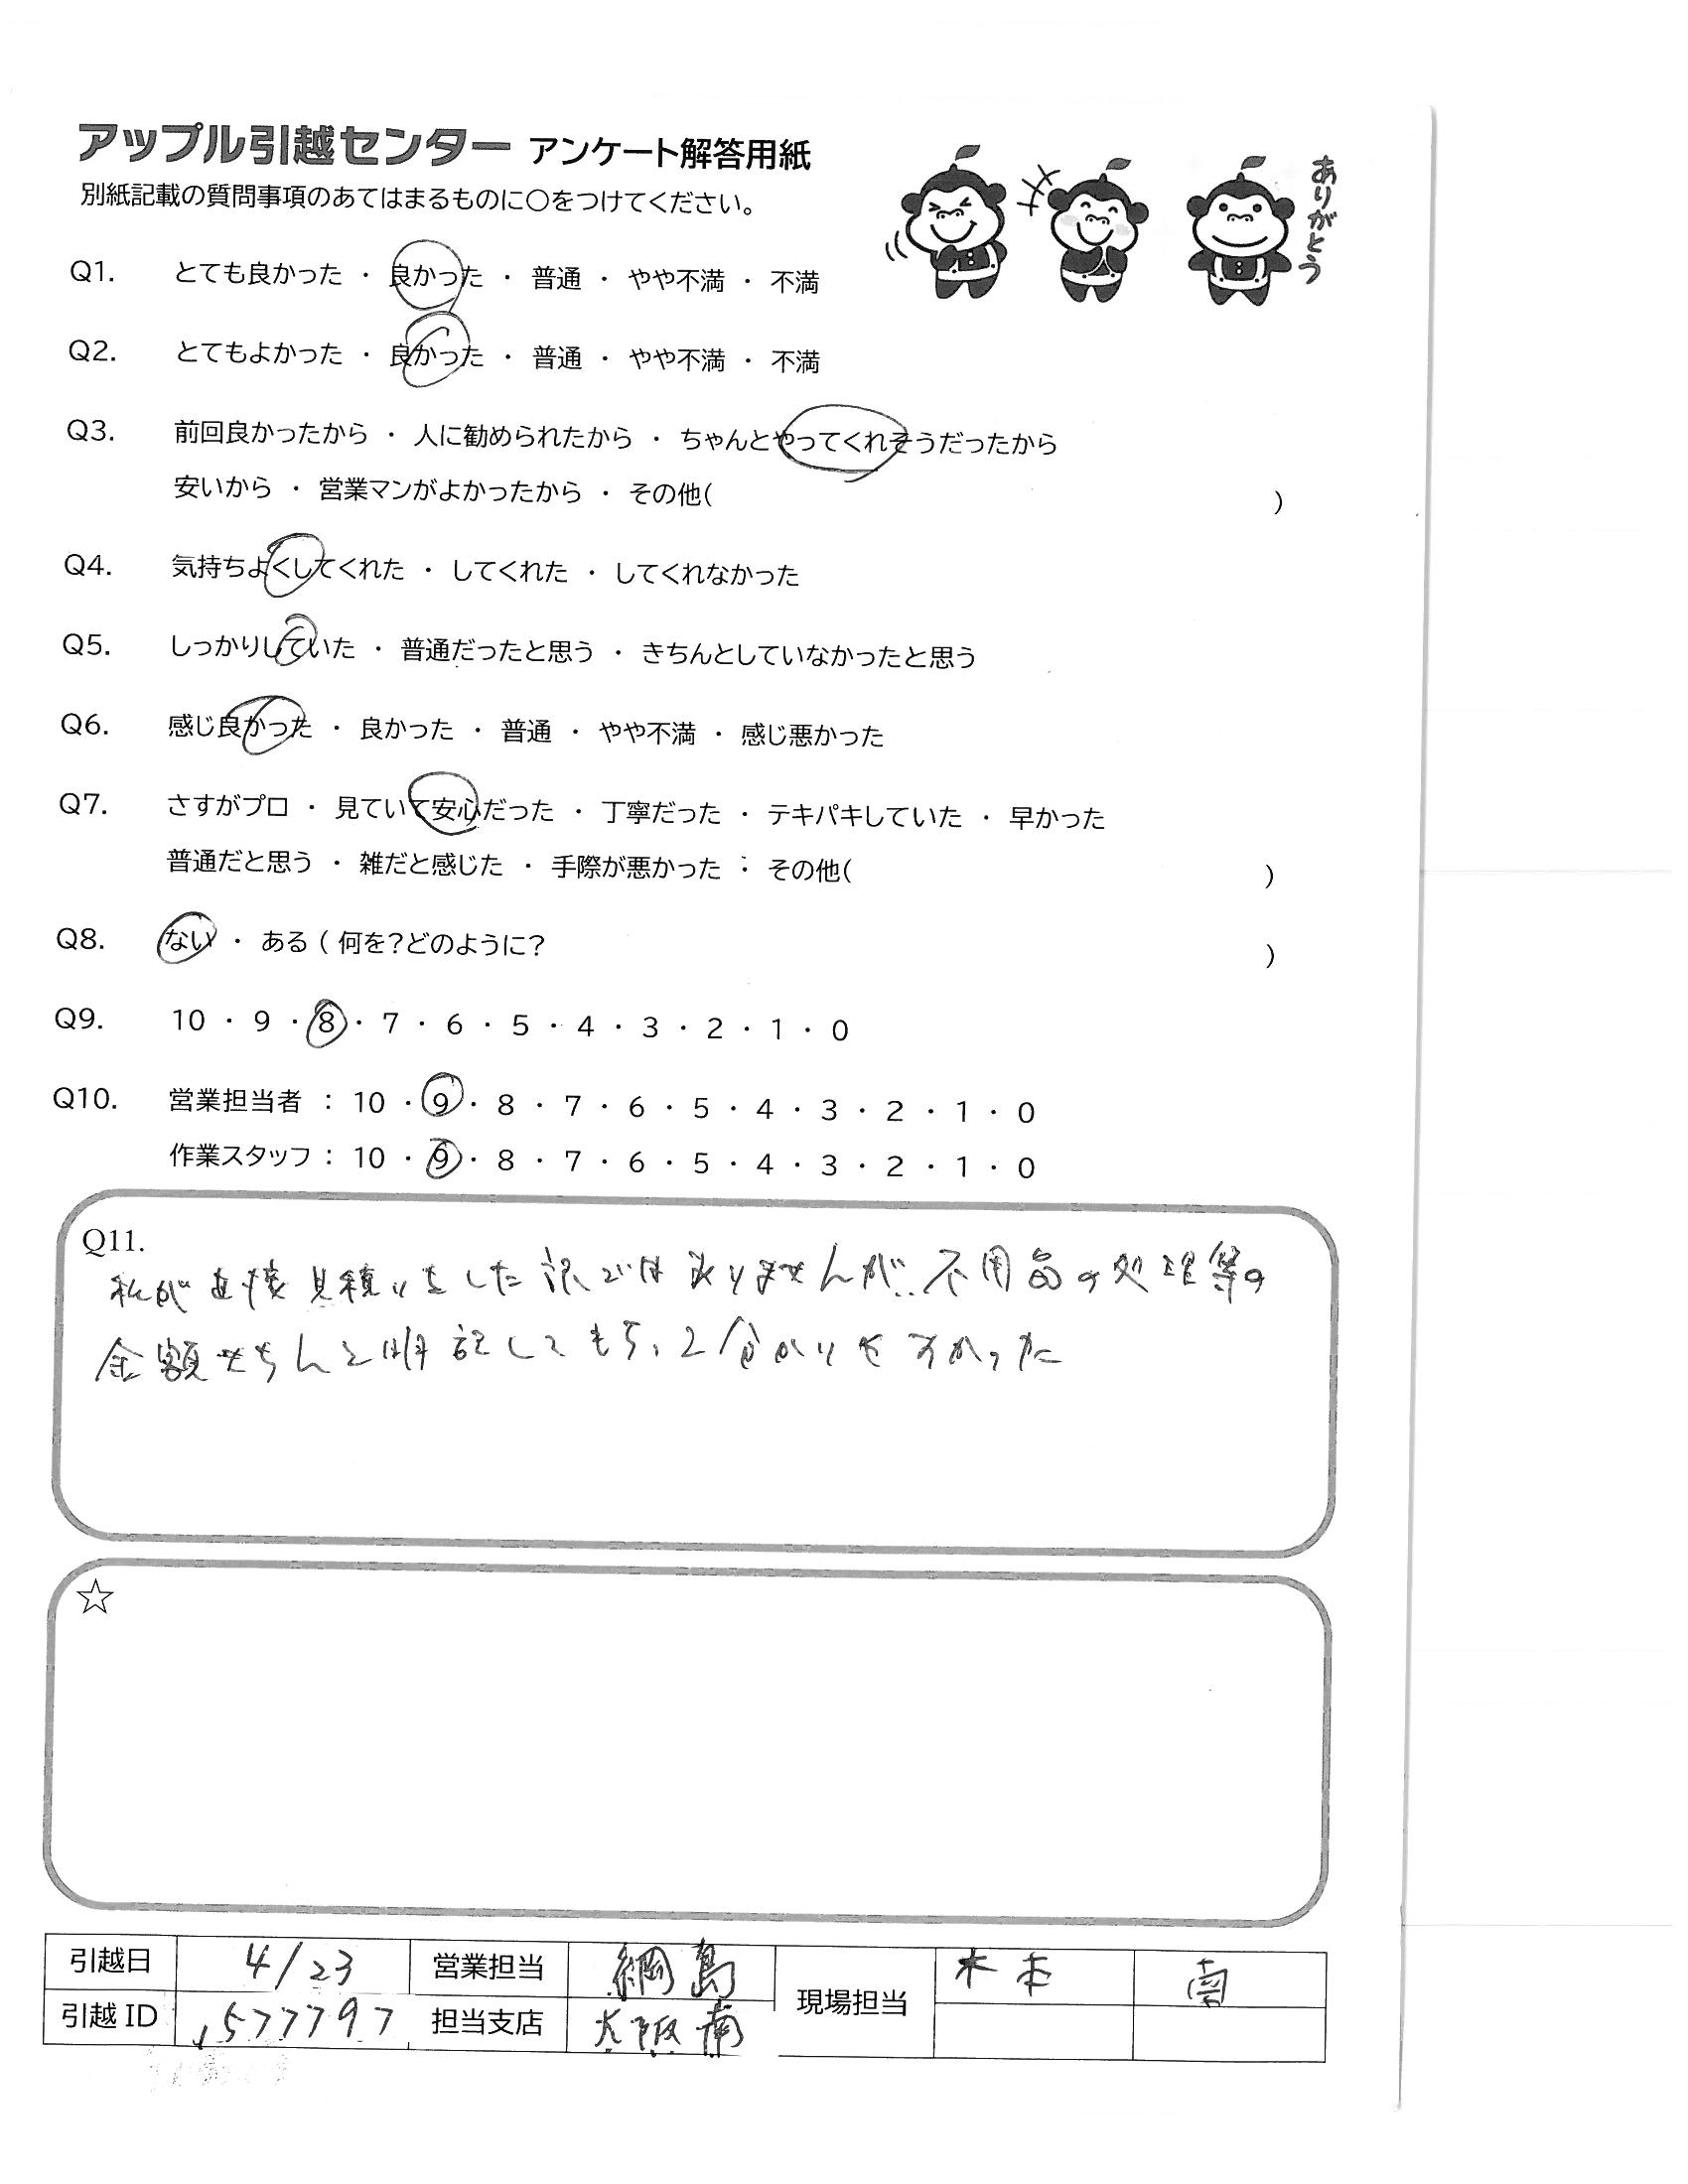 アップル引越センター アンケート解答用紙
別紙記載の質問事項のあてはまるものに○をつけてください。
ありがとう
Q1. とても良かった ・ 良かった ・ 普通 ・ やや不満 ・ 不満
Q2. とてもよかった ・ 良かった ・ 普通 ・ やや不満 ・ 不満
Q3. 前回良かったから ・ 人に勧められたから ・ ちゃんとやってくれそうだったから
安いから ・ 営業マンがよかったから ・ その他( )
Q4. 気持ちよくしてくれた ・ してくれた ・ してくれなかった
Q5. しっかりしていた ・ 普通だったと思う ・ きちんとしていなかったと思う
Q6. 感じ良かった ・ 良かった ・ 普通 ・ やや不満 ・ 感じ悪かった
Q7. さすがプロ ・ 見ていて安心だった ・ 丁寧だった ・ テキパキしていた ・ 早かった
普通だと思う ・ 雑だと感じた ・ 手際が悪かった ・ その他( )
Q8. ない ・ ある ( 何を?どのように? )
Q9. 10 ・ 9 ・ 8 ・ 7 ・ 6 ・ 5 ・ 4 ・ 3 ・ 2 ・ 1 ・ 0
Q10. 営業担当者 : 10 ・ 9 ・ 8 ・ 7 ・ 6 ・ 5 ・ 4 ・ 3 ・ 2 ・ 1 ・ 0
作業スタッフ : 10 ・ 9 ・ 8 ・ 7 ・ 6 ・ 5 ・ 4 ・ 3 ・ 2 ・ 1 ・ 0
Q11.
私が直接見積りをした訳ではありませんが、不用品の処理等の
金額もちんと明記してもらって分かりやすかった
☆
引越日 4/23 営業担当 綱島 現場担当 木本 南
引越 ID 577797 担当支店 大阪南